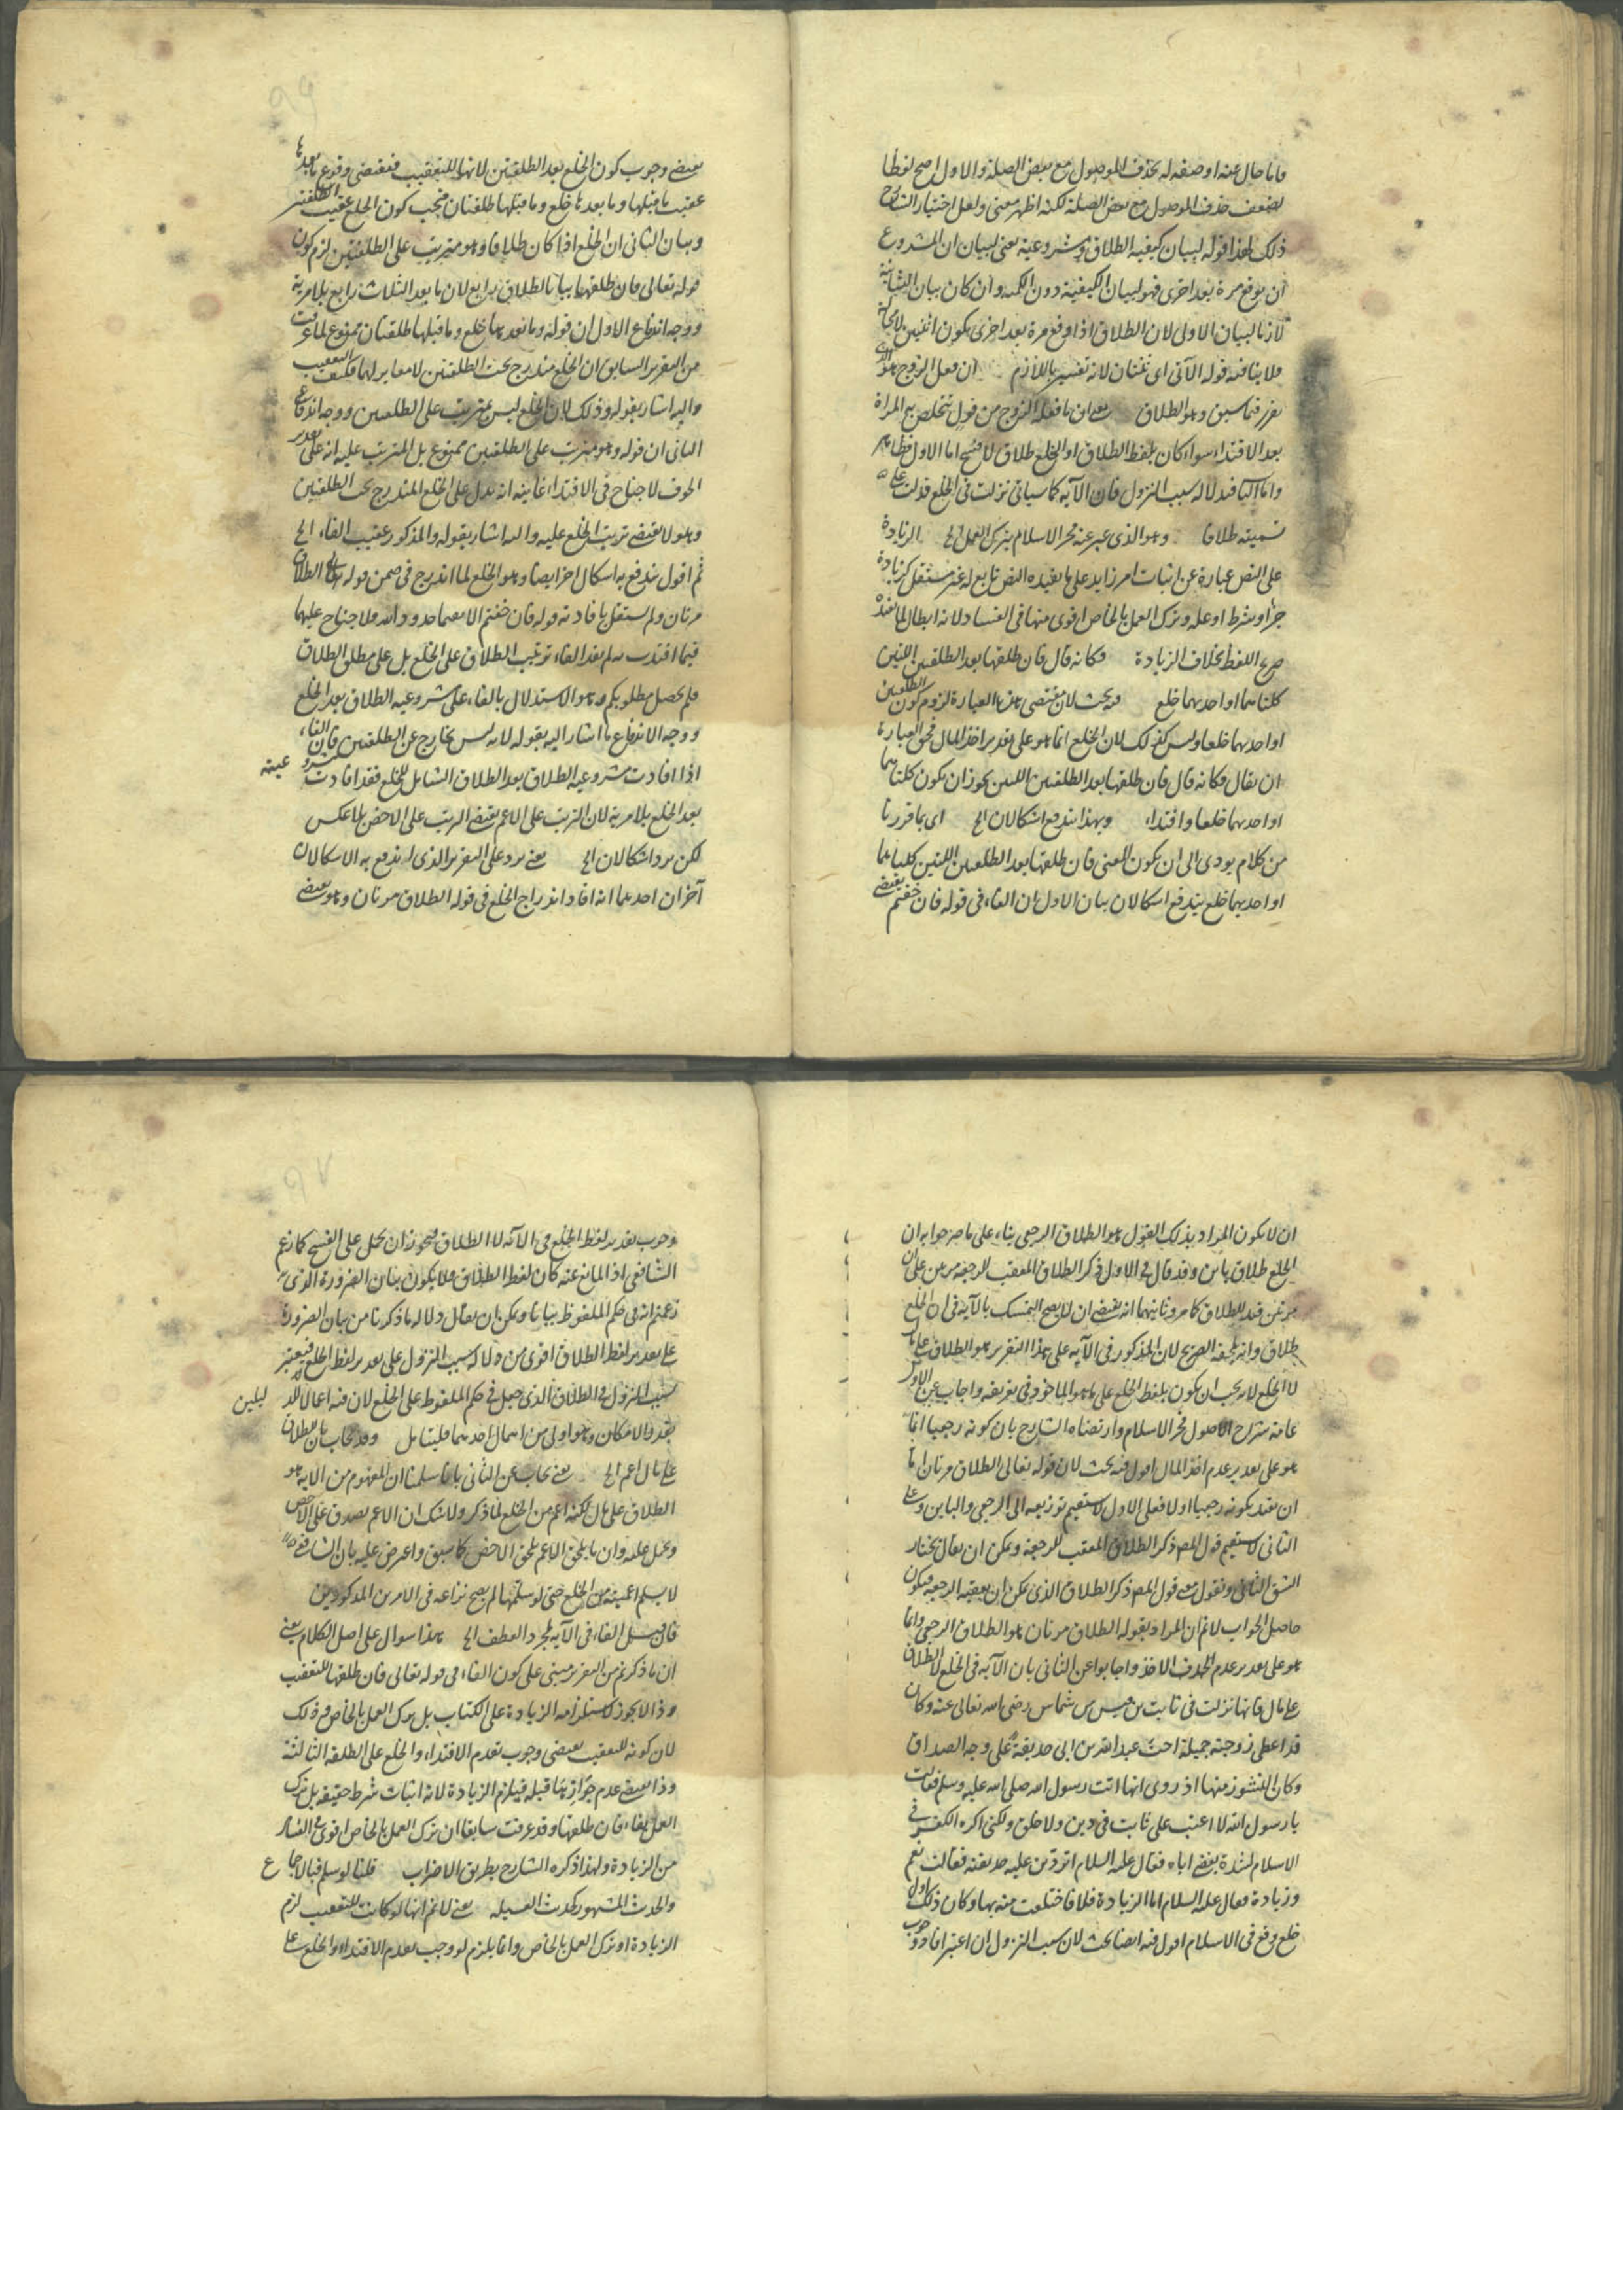 فاما حال عنه او صفة له بحذف الموصول مع بعض الصلة والاول اصح لفظا
لضعف حذف الموصول مع بعض الصلة لكنه اظهر معنى ولعل اختيار الشارح
ذلك لهذا قوله لبيان كيفية الطلاق ومشروعيته يعنى لبيان ان المشروع
ان يوقع مرة بعد اخرى فهو لبيان الكيفية دون الكمية وان كان بيان الثانية
لازما لبيان الاولى لان الطلاق اذا اوقع مرة بعد اخرى يكون اثنين لا محالة
ولا ينافيه قوله الآتى اى ثنتان لانه تفسير باللازم ان فعل الزوج هو الذى
تقرر فيما سبق وهو الطلاق يعنى ان ما فعله الزوج من قول تتخلص به المراة
بعد الافتداء سواء كان بلفظ الطلاق او الخلع طلاق لا فسخ اما الاول فظاهر
واما الثانى فلدلالة سبب النزول فان الآية كما سياتى نزلت فى الخلع فدلت على
تسميته طلاقا وهو الذى عبر عنه فخر الاسلام بترك العمل الخ الزيادة
على النص عبارة عن اثبات امر زايد على ما يفيده النص تابع له غير مستقل كزيادة
جزء او شرط او علة وترك العمل بالخاص اقوى منها فى الفساد لانه ابطال لما يفيده
صريح اللفظ بخلاف الزيادة فكانه قال فان طلقها بعد الطلقتين اللتين
كلتاهما او احديهما خلع فيه بحث لان مقتضى هذه العبارة لزوم كون الطلقتين
او احديهما خلعا وليس كذلك لان الخلع انما هو على تقدير اخذ المال فحق العبارة
ان يقال فكانه قال فان طلقها بعد الطلقتين اللتين يجوز ان يكون كلتاهما
او احديهما خلعا وافتداء وبهذا يندفع اشكالان الخ اى بما قررنا
من كلام يودى الى ان يكون المعنى فان طلقها بعد الطلقتين اللتين كلتاهما
او احديهما خلع يندفع اشكالان بيان الاول ان الفاء فى قوله فان خفتم يقتضى
يقتضى وجوب كون الخلع بعد الطلقتين لانها للتعقيب فيقتضى وقوع ما بعدها
عقيب ما قبلها وما بعدها خلع وما قبلها طلقتان فيجب كون الخلع عقيب الطلقتين
وبيان الثانى ان الخلع اذا كان طلاقا وهو مترتب على الطلقتين لزم كون
قوله تعالى فان طلقها بيانا لطلاق رابع لان ما بعد الثلاث رابع بلا مرية
ووجه اندفاع الاول ان قوله وما بعدها خلع وما قبلها طلقتان ممنوع لما عرفت
من التقرير السابق ان الخلع مندرج تحت الطلقتين لا مغاير لهما فكيف التعقيب
واليه اشار بقوله وذلك لان الخلع ليس بمترتب على الطلقتين ووجه اندفاع
الثانى ان قوله وهو مترتب على الطلقتين ممنوع بل المترتب عليه انه على تقدير
الخوف لا جناح فى الافتداء غايته انه يدل على الخلع المندرج تحت الطلقتين
وهو لا يقتضى ترتب الخلع عليه واليه اشار بقوله والمذكور عقيب الفاء الخ
ثم اقول يندفع به اشكال اخر ايضا وهو الخلع لما اندرج فى ضمن قوله تعالى الطلاق
مرتان ولم يستقل بافادته قوله فان خفتم الا يقيما حدود الله فلا جناح عليهما
فيما افتدت به لم يفد الفاء ترتب الطلاق على الخلع بل على مطلق الطلاق
فلم يحصل مطلوبكم وهو الاستدلال بالفاء على مشروعية الطلاق بعد الخلع
ووجه الاندفاع ما اشار اليه بقوله لانه ليس بخارج عن الطلقتين فان الفاء
اذا افادت مشروعية الطلاق بعد الطلاق الشامل للخلع فقد افادت مشروعيته
بعد الخلع بلا مرية لان الترتب على الاعم يقتضى الترتب على الاخص بلا عكس
لكن يرد اشكالان الخ يعنى يرد على التقرير الذى اندفع به الاشكالان
آخران احدهما انه افاد اندراج الخلع فى قوله الطلاق مرتان وهو يقتضى
ان لا يكون المراد بذلك القول هو الطلاق الرجعى بناء على ما صرحوا به ان
الخلع طلاق باين وقد قال فى الاول ذكر الطلاق المعقب للرجعة مرتين على ان
مرتين قيد للطلاق كما مر وثانيهما انه يقتضى ان لا يصح التمسك بالآية فى ان الخلع
طلاق وانه يلحقه الصريح لان المذكور فى الآية على هذا التقرير هو الطلاق على مال
لا الخلع لانه يجب ان يكون بلفظ الخلع على ما هو الماخوذ فى تعريفه واجاب عن الاول
عامة شراح الاصول فخر الاسلام وارتضاه الشارح بان كونه رجعيا انما
هو على تقدير عدم اخذ المال اقول فيه بحث لان قوله تعالى الطلاق مرتان اما
ان يقيد بكونه رجعيا او لا فعلى الاول لا يستقيم توزيعه الى الرجعى والباين وعلى
الثانى لا يستقيم قول المصـ ذكر الطلاق المعقب للرجعة ويمكن ان يقال نختار
الشق الثانى ونقول معنى قول المصـ ذكر الطلاق الذى يمكن ان يعقبه الرجعة فيكون
حاصل الجواب لا نم ان المراد بقوله الطلاق مرتان هو الطلاق الرجعى وانما
هو على تقدير عدم الاخذ واجابوا عن الثانى بان الآية فى الخلع لا الطلاق
على مال فانها نزلت فى ثابت بن قيس بن شماس رضى الله تعالى عنه وكان
قد اعطى زوجته جميلة اخت عبد الله بن ابى حديقة على وجه الصداق
وكان النشوز منها اذ روى انها اتت رسول الله صلى الله عليه وسلم فقالت
يا رسول الله لا اعتب على ثابت فى دين ولا خلق ولكنى اكره الكفر فى
الاسلام لشدة بغضى اياه فقال عليه السلام اتردين عليه حديقته فقالت نعم
وزيادة فقال عليه السلام اما الزيادة فلا فاختلعت منه بها وكان ذلك اول
خلع وقع فى الاسلام اقول فيه ايضا بحث لان سبب النزول ان اعتبر افاد وجوب
وجوب تقدير لفظ الخلع فى الآية لا الطلاق فيجوز ان يحمل على الفسخ كما زعم
الشافعى اذ المانع عنه كان لفظ الطلاق ولا يكون بيان الضرورة الذى
زعمتم انه فى حكم الملفوظ بيانا ويمكن ان يقال دلالة ما ذكرنا من بيان الضرورة
على تقدير لفظ الطلاق اقوى من دلالة سبب النزول على تقدير لفظ الخلع فيعتبر
سبب النزول فى الطلاق الذى جعل فى حكم الملفوظ على الخلع لان فيه اعمالا للدليلين
بقدر الامكان وهو اولى من اهمال احدهما فليتامل وقد يجاب بان الطلاق
على مال اعم الخ يعنى يجاب عن الثانى بانا سلمنا ان المفهوم من الاية هو
الطلاق على مال لكنه اعم من الخلع لما ذكر ولا شك ان الاعم يصدق على الاخص
ويحمل عليه وان ما يلحق الاعم يلحق الاخص كما سبق واعترض عليه بان الشافعى
لا يسلم اعميته من الخلع حتى لو سلمها لم يصح نزاعه فى الامرين المذكورين
فان قيل الفاء فى الآية لمجرد العطف الخ هذا سوال على اصل الكلام يعنى
ان ما ذكرتم من التقرير مبنى على كون الفاء فى قوله تعالى فان طلقها للتعقيب
وذا لا يجوز لاستلزامه الزيادة على الكتاب بل ترك العمل بالخاص وذلك
لان كونه للتعقيب يقتضى وجوب تقدم الافتداء والخلع على الطلقة الثالثة
وذا يقتضى عدم جوازها قبله فيلزم الزيادة لانه اثبات شرط حقيقة بل ترك
العمل بفاء فان طلقها وقد عرفت سابقا ان ترك العمل بالخاص اقوى فى الفساد
من الزيادة ولهذا ذكره الشارح بطريق الاضراب قلنا لو سلم فبالاجماع
والحديث المشهور كحديث العسيلة يعنى لا نم انها لو كانت للتعقيب لزم
الزيادة او ترك العمل بالخاص وانما يلزم لو وجب تقدم الافتداء والخلع على